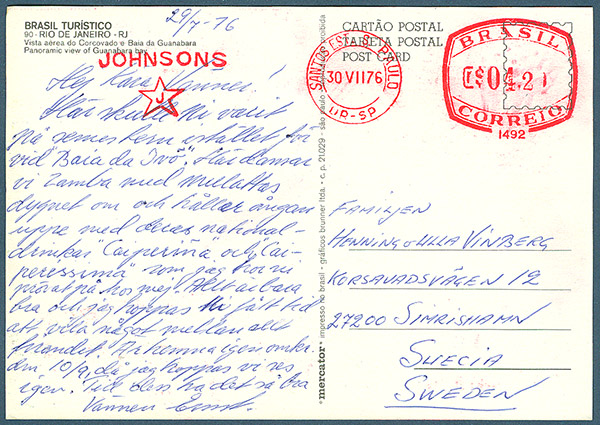 29/7-76
BRASIL TURÍSTICO
90 - RIO DE JANEIRO - RJ
Vista aérea do Corcovado e Baia da Guanabara
Panoramic view of Guanabara bay
JOHNSONS
J
Hej kära Vänner!
Här skulle Ni varit
på semestern istället för
vid "Baia da Irö". Här dansar
vi Zamba med Mulattas
dygnet om och håller ångan
uppe med deras national-
drinkar "Caiperiña" och "Cai-
peressima" som jag har
på hos mej. Allt är bara
bra och jag hoppas Ni fått tid
att vila något mellan allt
firandet. Är hemma igen omkr.
den 10/9, då jag hoppas vi ses
igen. Till dess ha det så bra
Vännen Ernst.
CARTÃO POSTAL
TARJETA POSTAL
POST CARD
SANTOS EST. S. PAULO
30 VII 76
UR-SP
BRASIL
C$ 04,20
CORREIO
1492
*mercator* impresso no brasil - gráficos brunner ltda. - c. p. 21029 - são paulo proibida
FAMILJEN
HENNING o ULLA VINBERG
KORSAVADSVÄGEN 12
27200 SIMRISHAMN
SUECIA
SWEDEN